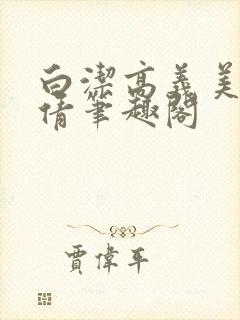 白潔高義美
倩筆趣閣
賈偉平